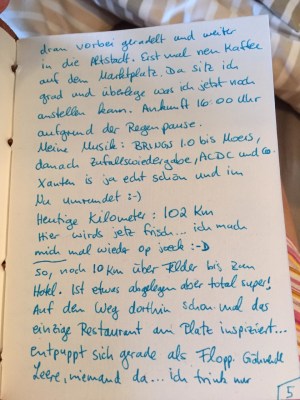 dran vorbei geradelt und weiter
in die Altstadt. Erst mal nen Kaffee
auf dem Marktplatz. Da sitz ich
grad und überlege was ich jetzt noch
anstellen kann. Ankunft 16:00 Uhr
aufgrund der Regenpause.
Meine Musik: BRINGS 1.0 bis Moers,
danach Zufallswiedergabe, ACDC und Co.
Xanten is ja echt schön und im
Nu umrundet :-)
Heutige Kilometer: 102 Km
Hier wirds jetz frisch... ich mach
mich mal wieder op jöck :-D
So, noch 10 km über Felder bis zum
Hotel. Ist etwas abgelegen aber total super!
Auf dem Weg dorthin schon mal das
einzige Restaurant am Platz inspiziert...
entpuppt sich gerade als Flopp. Gähnende
Leere, niemand da... ich trink nur
5